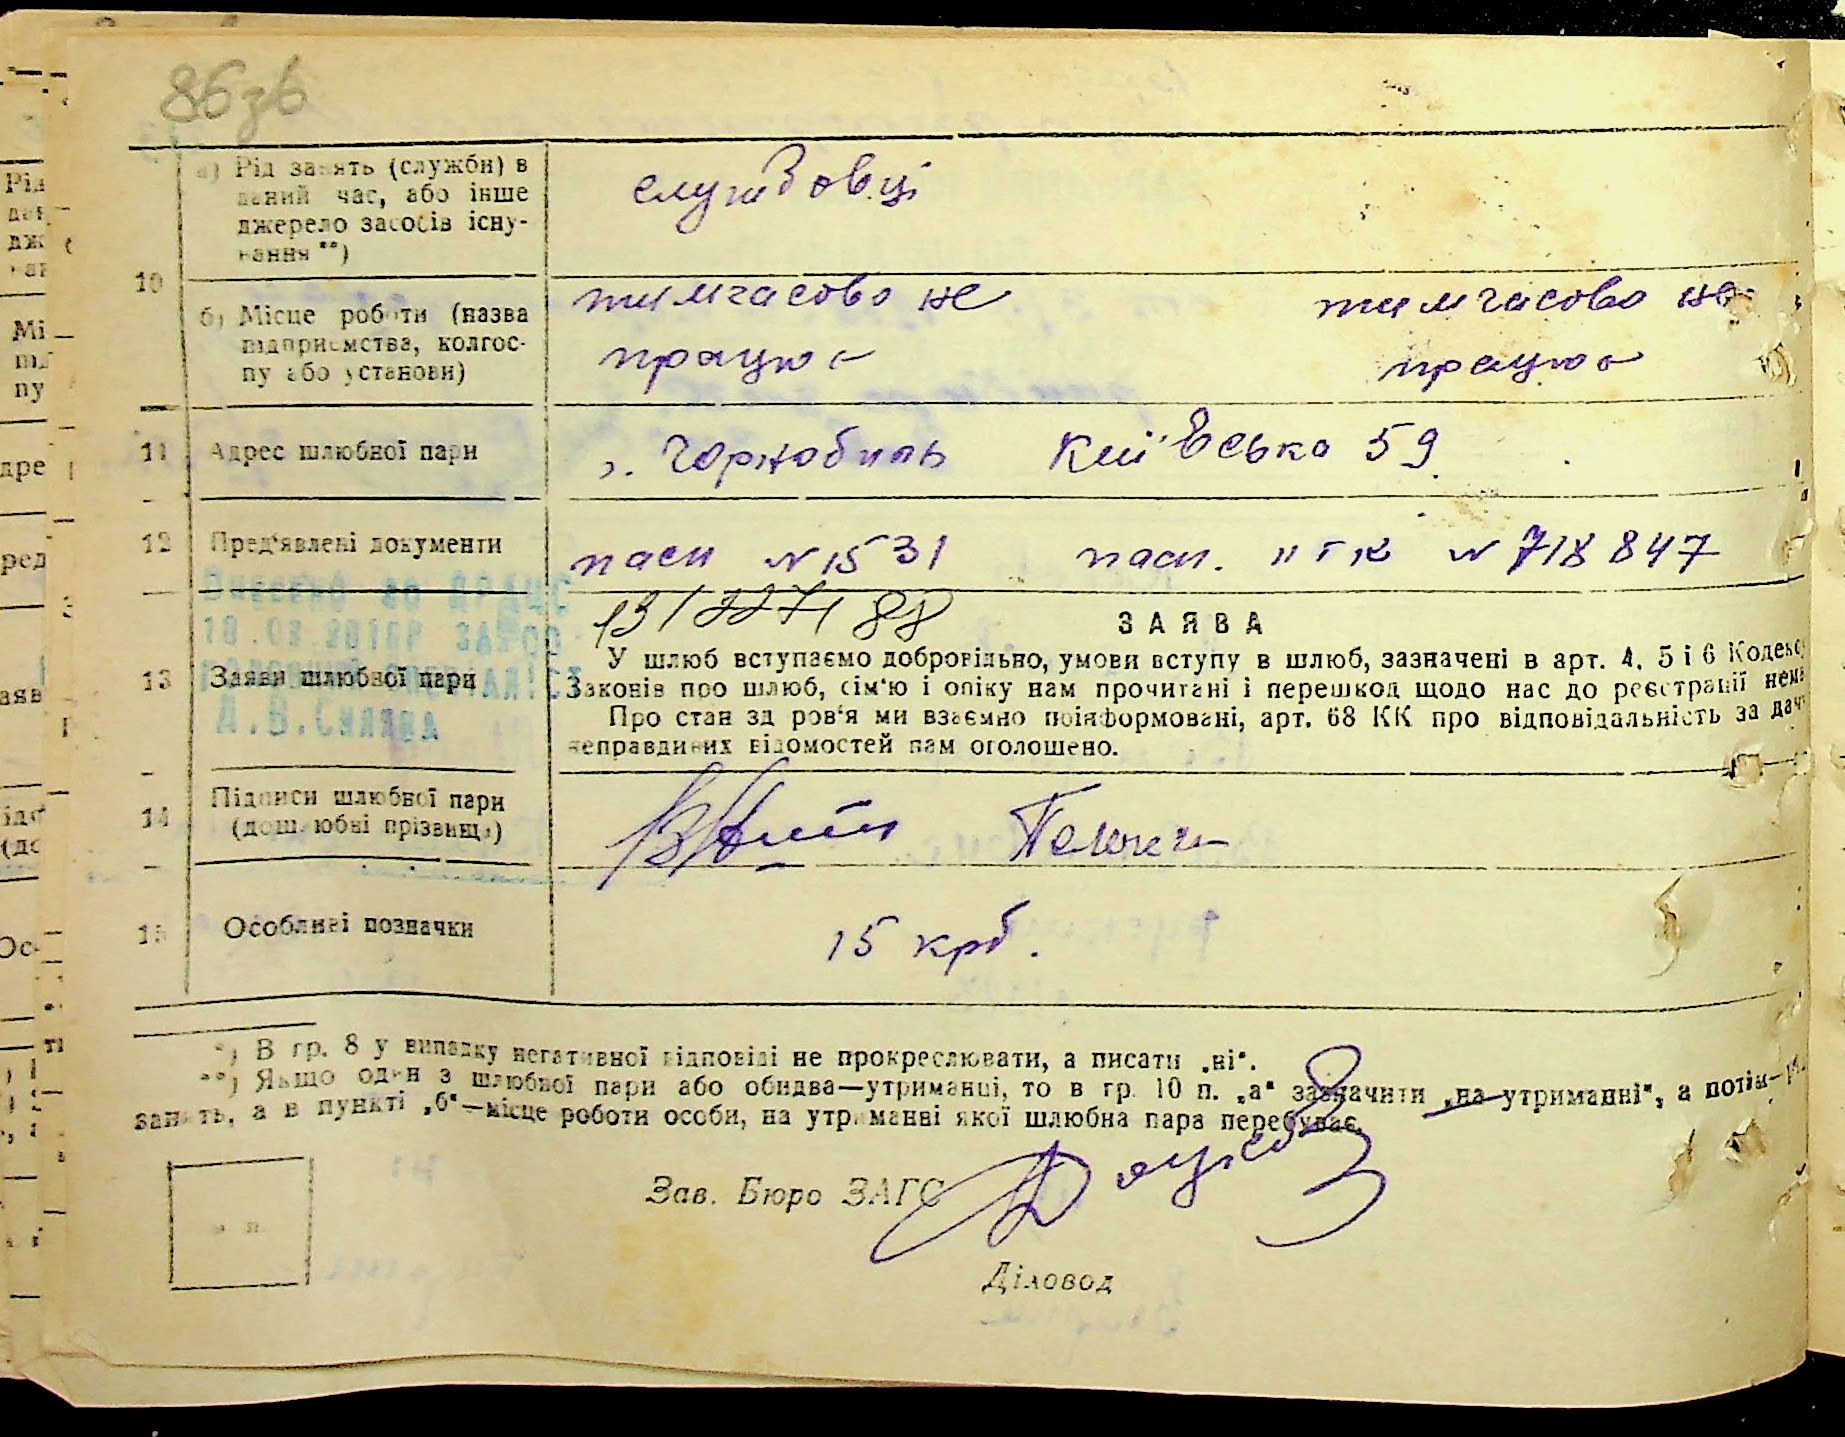 86зв
10
а) Рід занять (служби) в
даний час, або інше
джерело засобів існу-
вання **)
службовці
б) Місце роботи (назва
підприємства, колгос-
пу або установи)
тимчасово не
працює
тимчасово не
працює
11 Адрес шлюбної пари
Чорнобиль Київська 59
12 Пред'явлені документи
пасп № 1531 пасп. ІІ ГК № 718847
Внесено до ДРАЦС
А.В.Сулява
13 Заяви шлюбної пари
ЗАЯВА
У шлюб вступаємо добровільно, умови вступу в шлюб, зазначені в арт. 4, 5 і 6 Кодексу
Законів про шлюб, сім'ю і опіку нам прочитані і перешкод щодо нас до реєстрації нема
Про стан здоров'я ми взаємно поінформовані, арт. 68 КК про відповідальність за дачу
неправдивих відомостей нам оголошено.
14 Підписи шлюбної пари
(дошлюбні прізвища)
15 Особливі позначки
15 крб.
*) В гр. 8 у випадку негативної відповіді не прокреслювати, а писати „ні“.
**) Якщо один з шлюбної пари або обидва—утриманці, то в гр. 10 п. „а“ зазначити „на утриманні“, а потім—
занять, а в пункті „б“—місце роботи особи, на утриманні якої шлюбна пара перебуває.
Зав. Бюро ЗАГС
Діловод